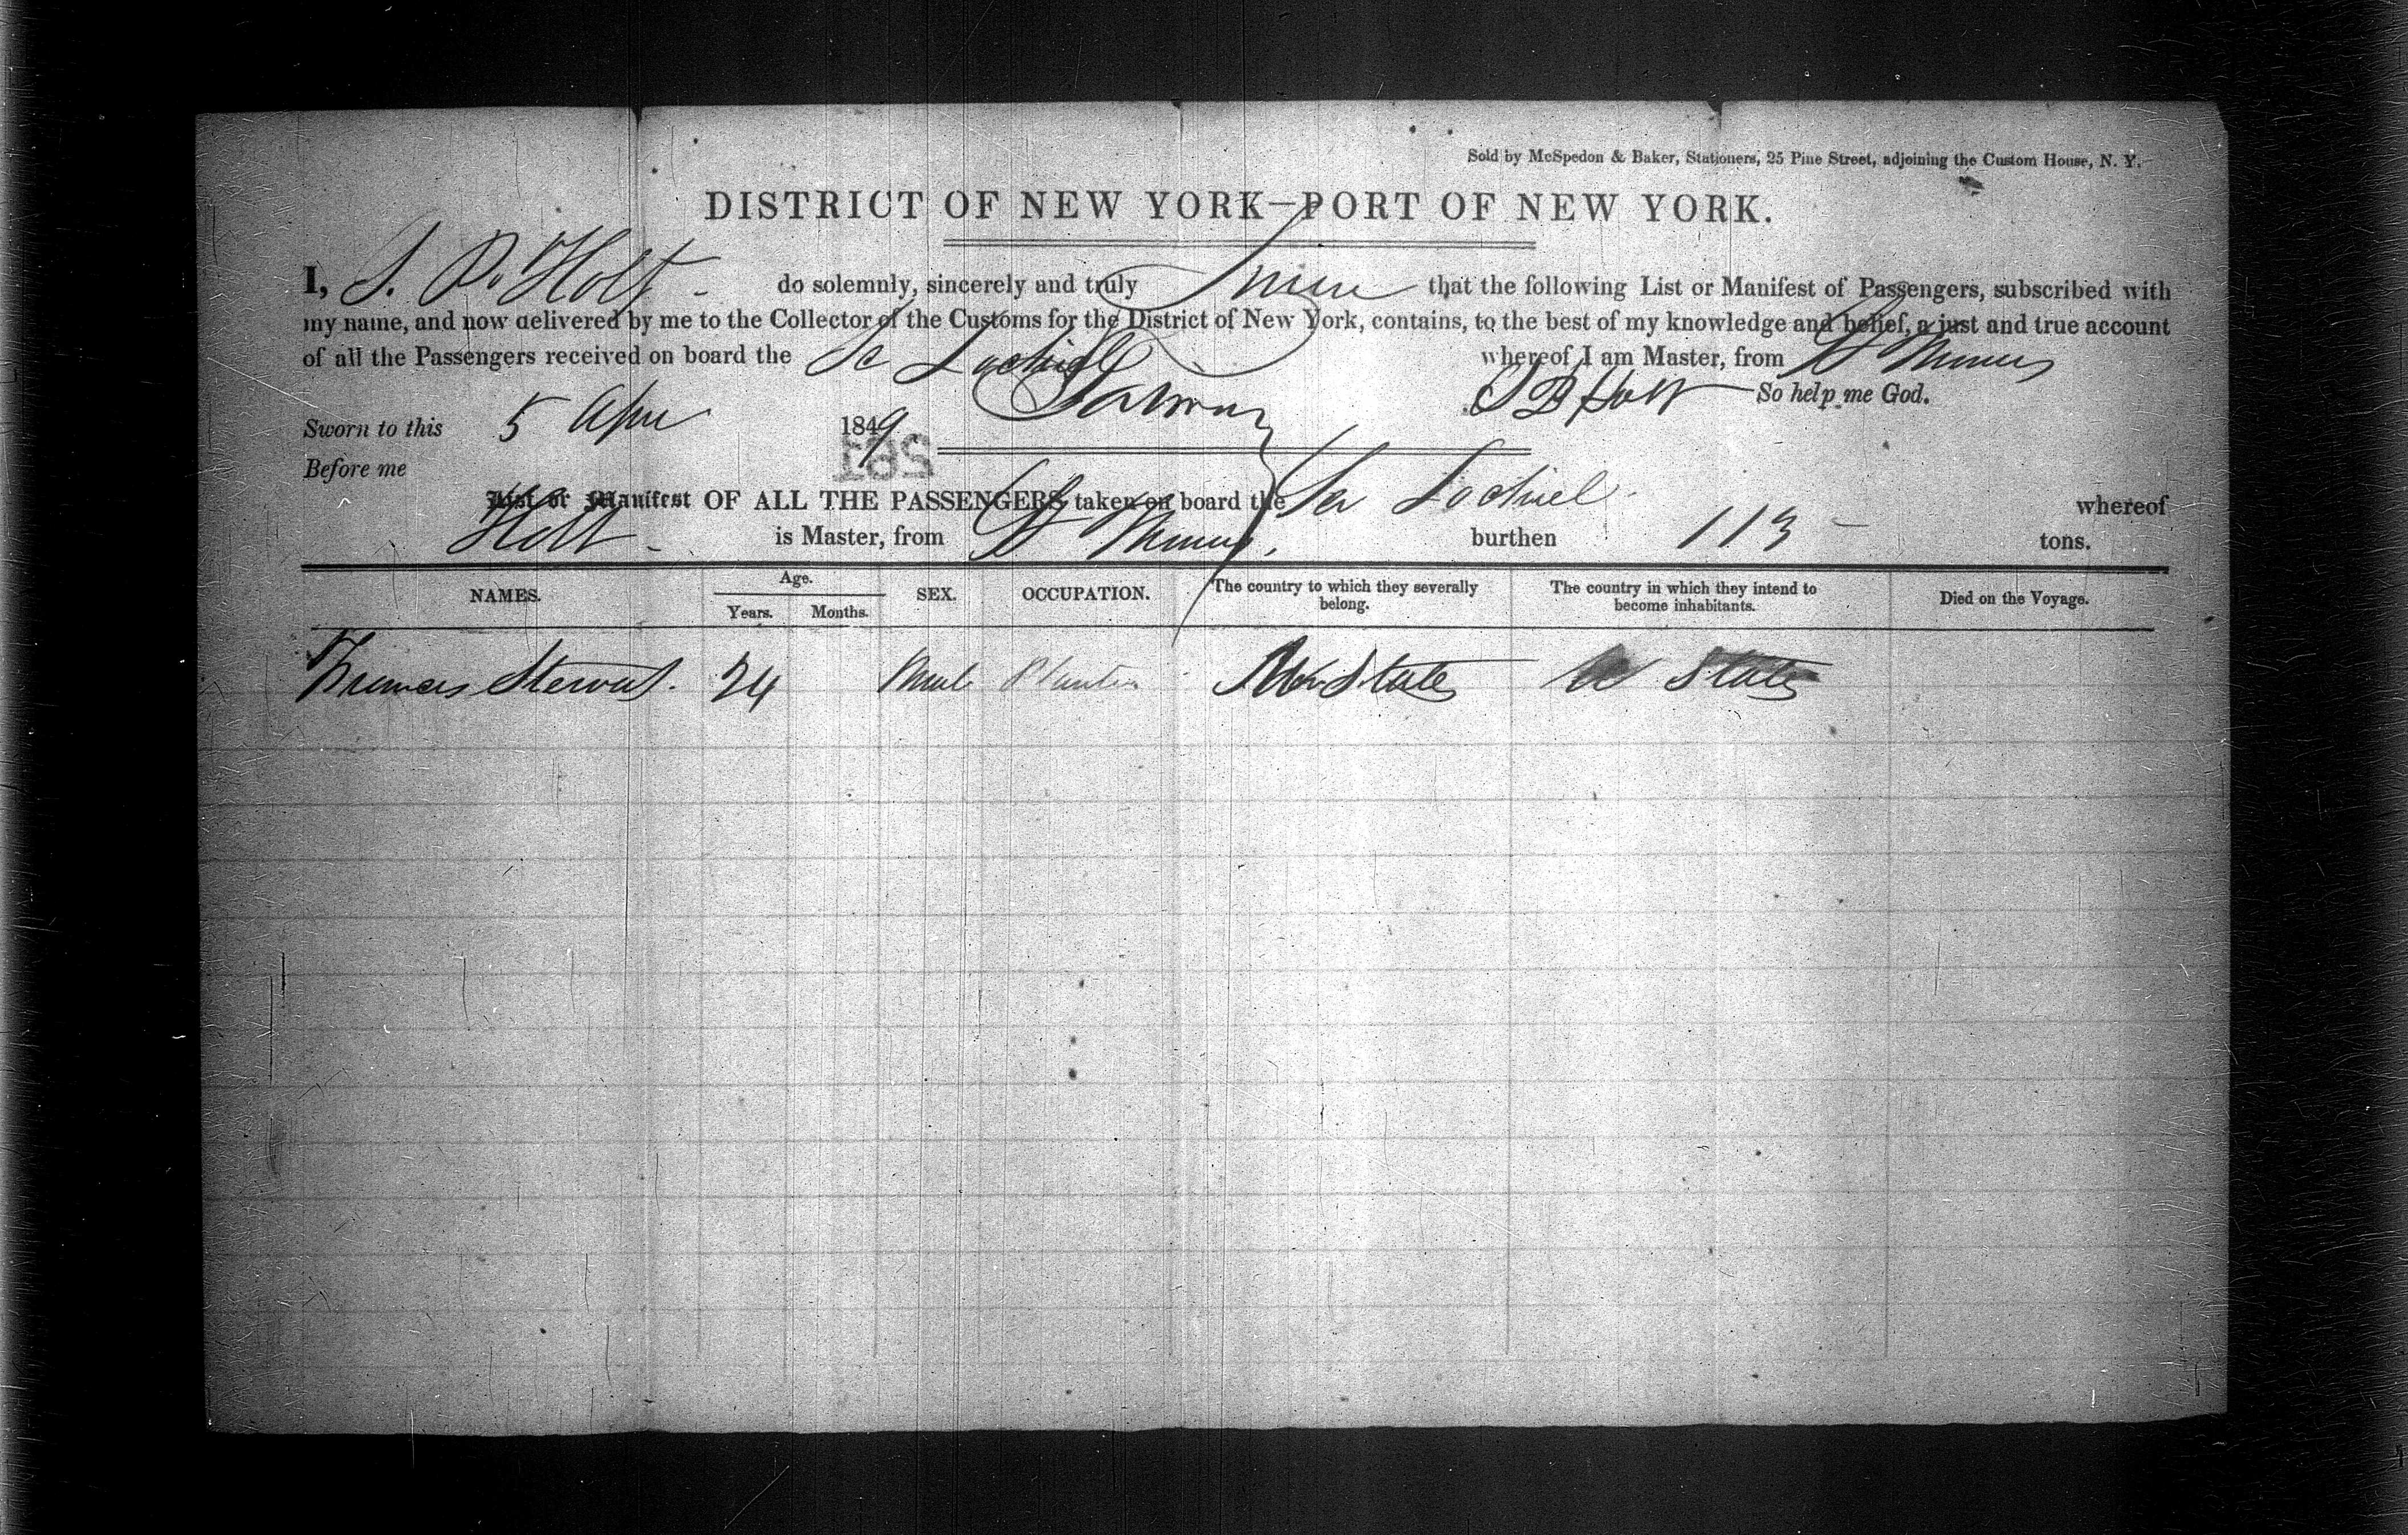 Sold by McSpedon & Baker, Stationers, 25 Pine Street, adjoining the Custom House, N. Y.
DISTRICT OF NEW YORK—PORT OF NEW YORK.
I, Holt do solemnly, sincerely and truly that the following List or Manifest of Passengers, subscribed with
my name, and now delivered by me to the Collector of the Customs for the District of New York, contains, to the best of my knowledge and belief, a just and true account
of all the Passengers received on board the Sc Lochiel whereof I am Master, from St
Holt So help me God.
Sworn to this 5 Apr 1849
261
Before me
List or Manifest OF ALL THE PASSENGERS taken on board the Scr Lochiel whereof
Holt is Master, from St burthen 113 tons.
NAMES. Age. Years. Months. SEX. OCCUPATION. The country to which they severally belong. The country in which they intend to become inhabitants. Died on the Voyage.
Stewart. 24 Male Planter States U States